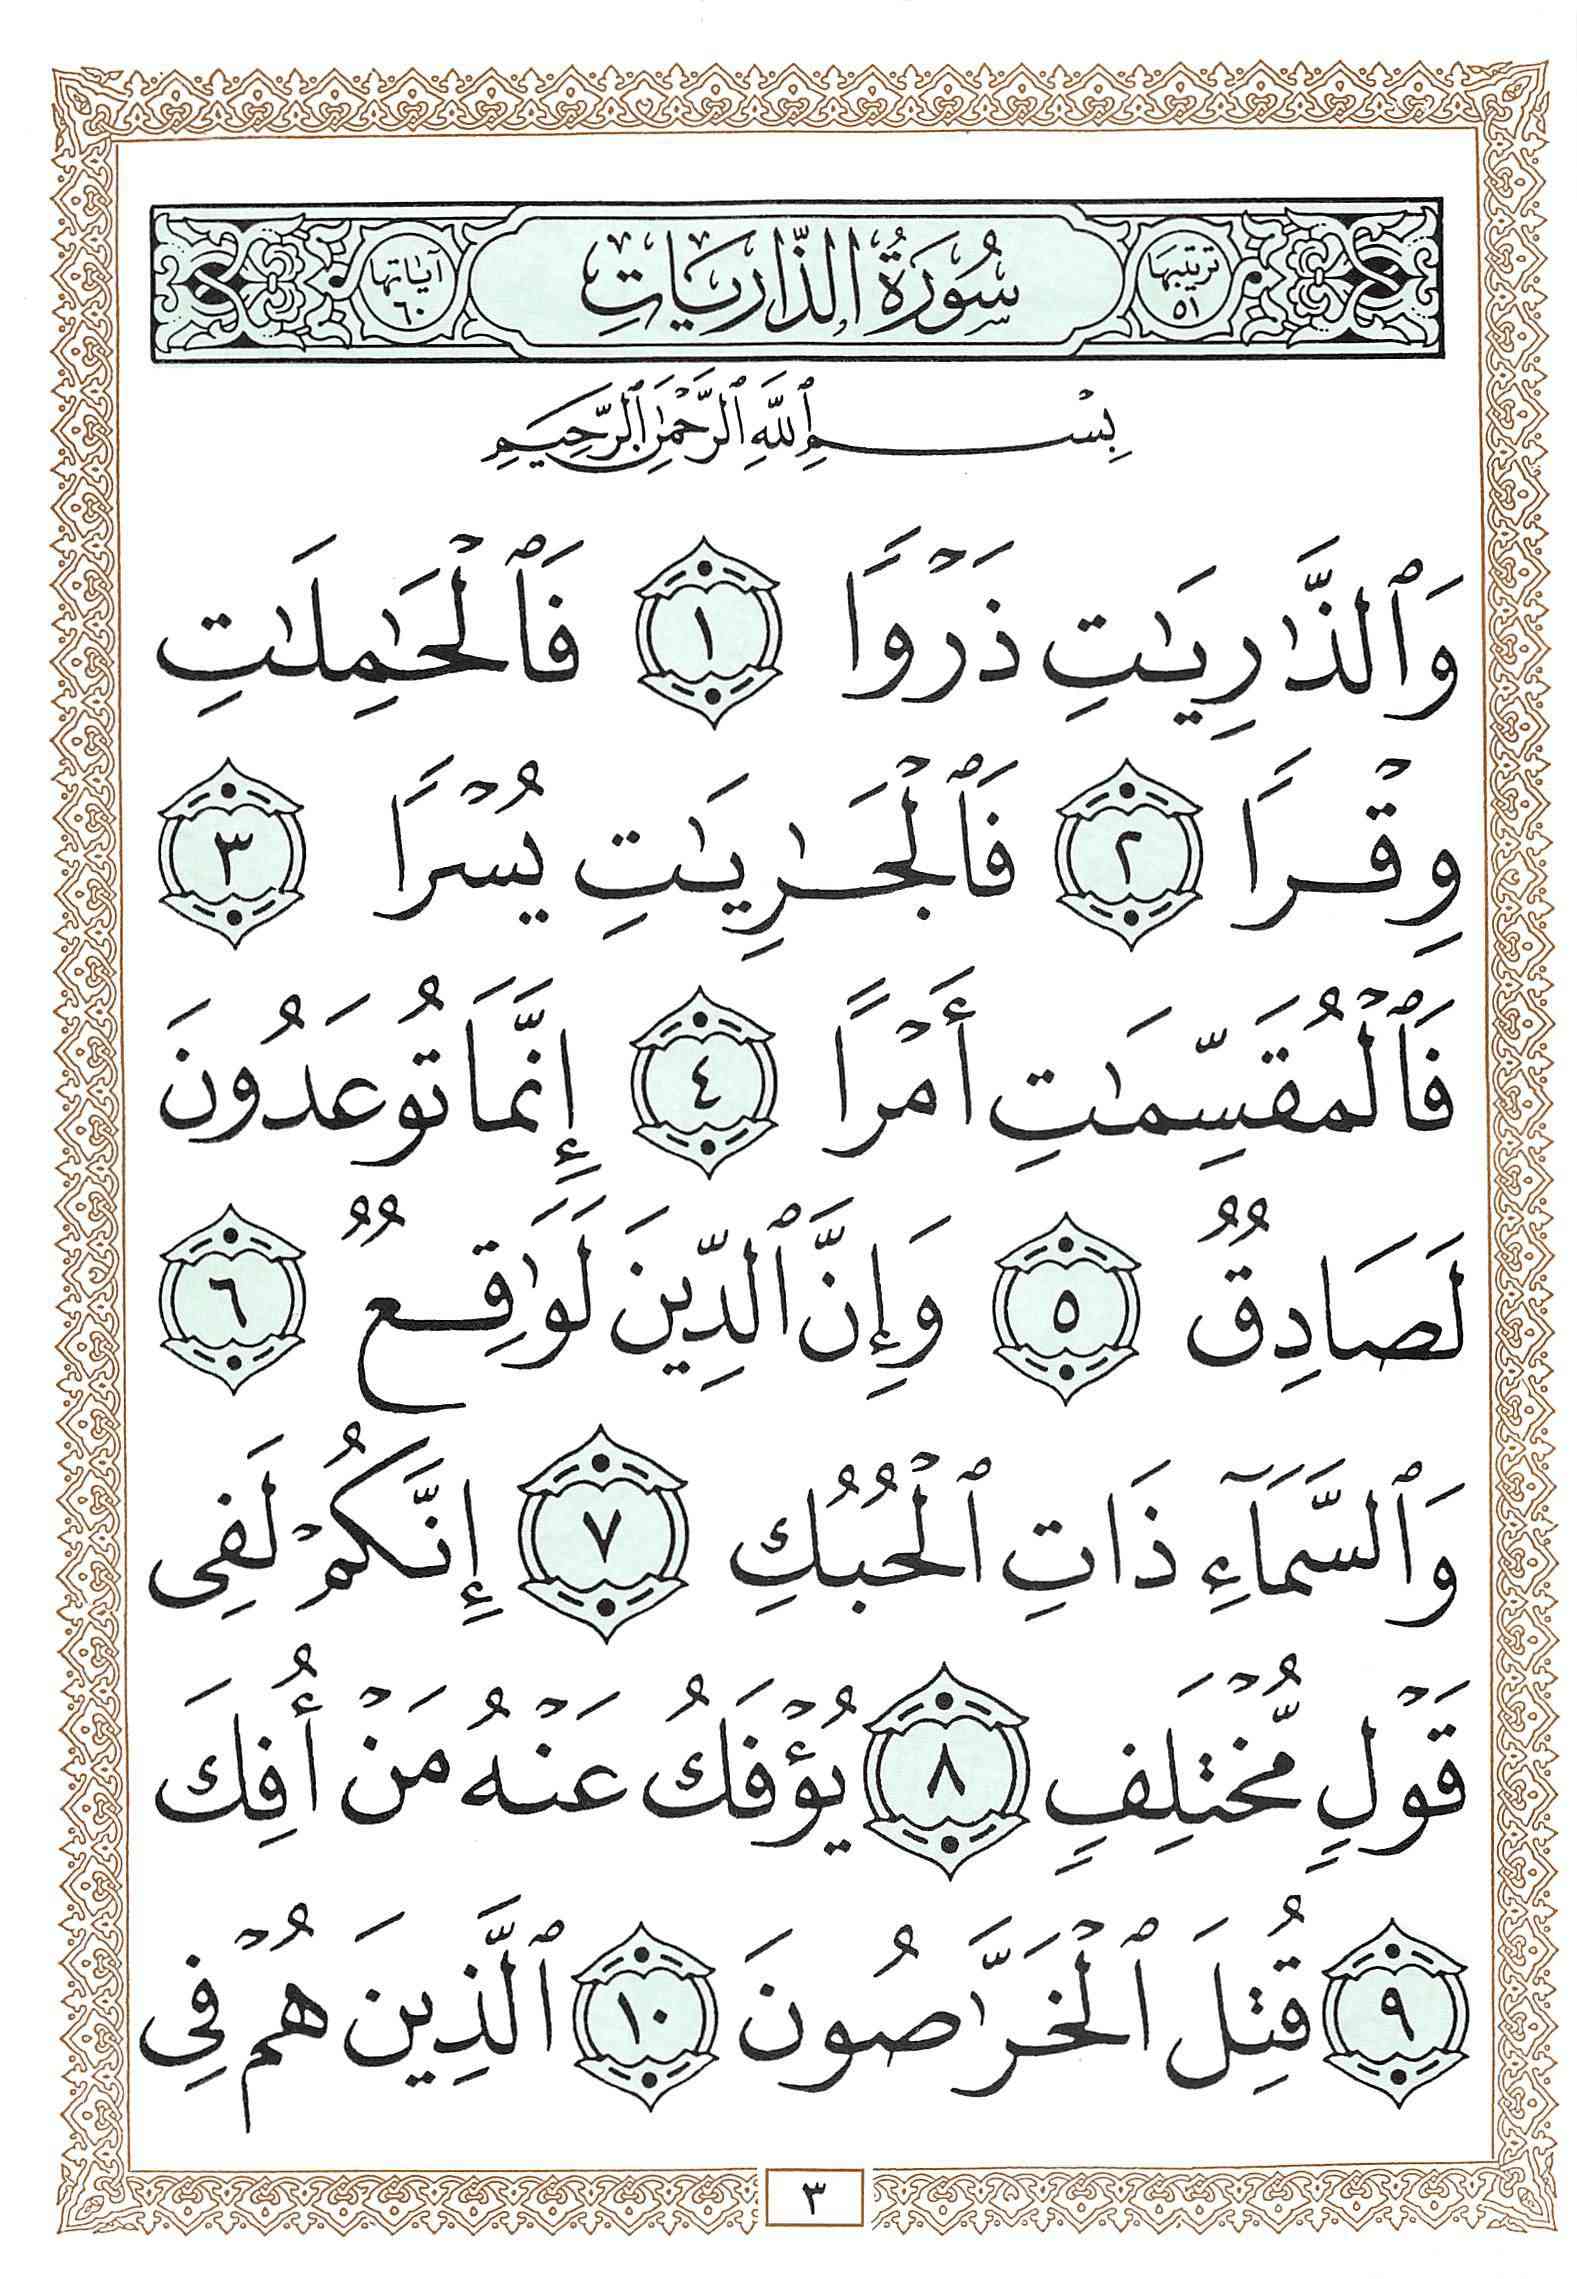 ترتيبها ٥١ سُورَةُ الذَّارِيَاتِ آياتها ٦٠
بِسْمِ ٱللَّهِ ٱلرَّحْمَٰنِ ٱلرَّحِيمِ
وَٱلذَّٰرِيَٰتِ ذَرْوًا ١ فَٱلْحَٰمِلَٰتِ
وِقْرًا ٢ فَٱلْجَٰرِيَٰتِ يُسْرًا ٣
فَٱلْمُقَسِّمَٰتِ أَمْرًا ٤ إِنَّمَا تُوعَدُونَ
لَصَادِقٌ ٥ وَإِنَّ ٱلدِّينَ لَوَٰقِعٌ ٦
وَٱلسَّمَآءِ ذَاتِ ٱلْحُبُكِ ٧ إِنَّكُمْ لَفِى
قَوْلٍ مُّخْتَلِفٍ ٨ يُؤْفَكُ عَنْهُ مَنْ أُفِكَ
٩ قُتِلَ ٱلْخَرَّٰصُونَ ١٠ ٱلَّذِينَ هُمْ فِى
٣